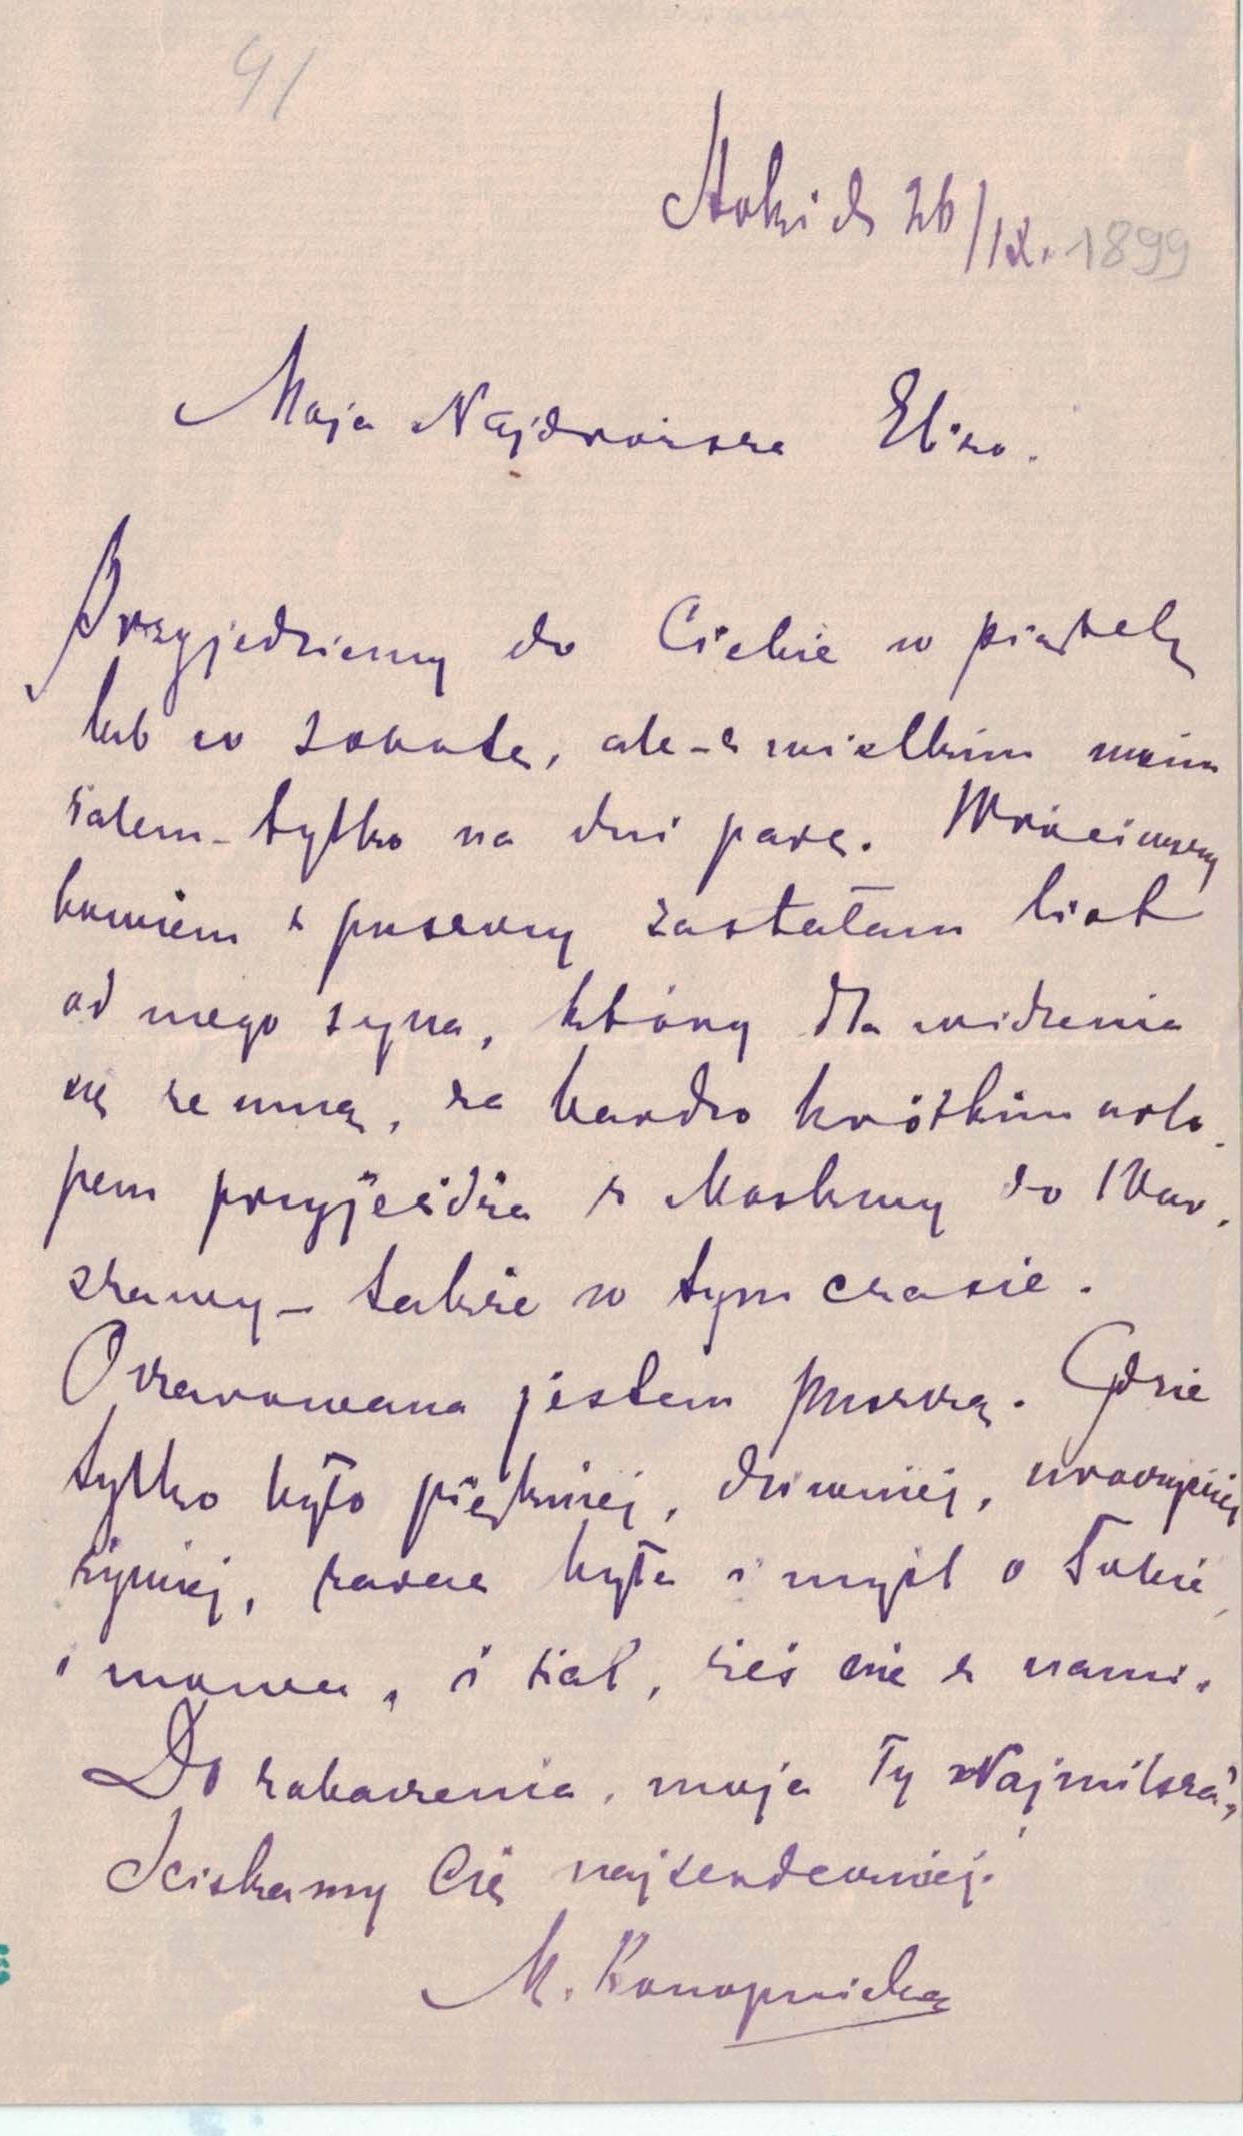 41
Stoki d. 26/IX. 1899
Moja Najdroższa Elizo.
Przyjedziemy do Ciebie w piątek
lub w sobotę, ale - z wielkim moim
żalem - tylko na dni parę. Wróciwszy
bowiem z puszczy zastałam list
od mego syna, który dla widzenia
się ze mną, za bardzo krótkim urlo-
pem przyjeżdża z Moskwy do War-
szawy - także w tym czasie.
Oczarowana jestem puszczą. Gdzie
tylko było piękniej, dziwniej,
zawsze była i myśl o Tobie
i mowa, i żal, żeś nie z nami.
Do zobaczenia, moja Ty Najmilsza,
Ściskamy Cię najserdeczniej.
M. Konopnicka